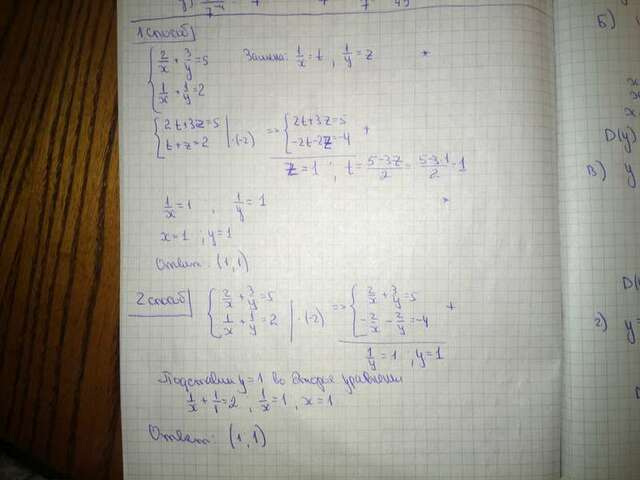 1 способ
{ 2/x + 3/y = 5
{ 1/x + 1/y = 2
Замена: 1/x = t ; 1/y = z
{ 2t+3z=5
{ t+z=2 | ·(-2)
=> { 2t+3z=5
{ -2t-2z=-4 +
z=1 ; t = (5-3z)/2 = (5-3·1)/2 = 1
1/x = 1 , 1/y = 1
x=1 ; y=1
Ответ: (1,1)
2 способ
{ 2/x + 3/y = 5
{ 1/x + 1/y = 2 | ·(-2)
=> { 2/x + 3/y = 5
{ -2/x - 2/y = -4 +
1/y = 1 ; y=1
Подставим y=1 во второе уравнение
1/x + 1/1 = 2 , 1/x = 1 , x = 1
Ответ: (1,1)
Б)
x
x
x
D(y)
В) y
D(
г) y=